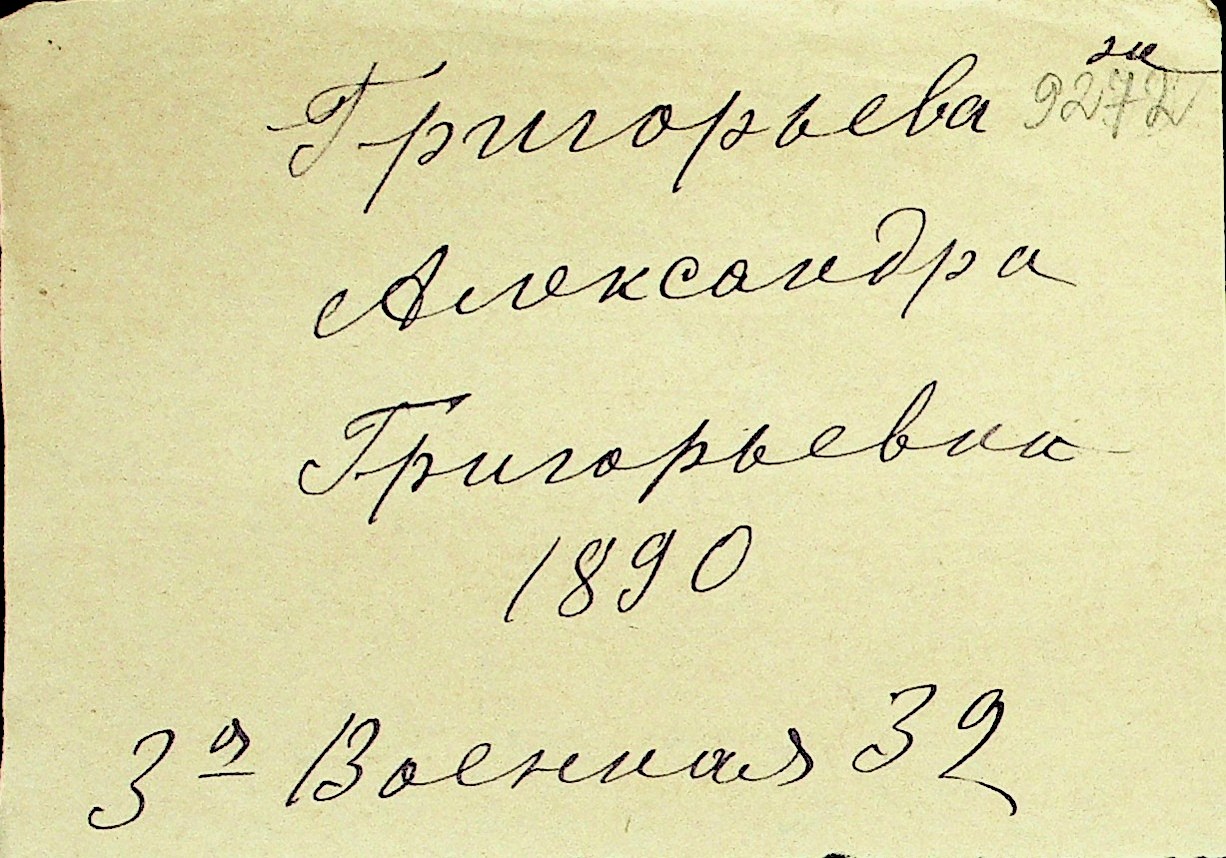 Григорьева 9272
Александра
Григорьевна
1890
3я Военная 32